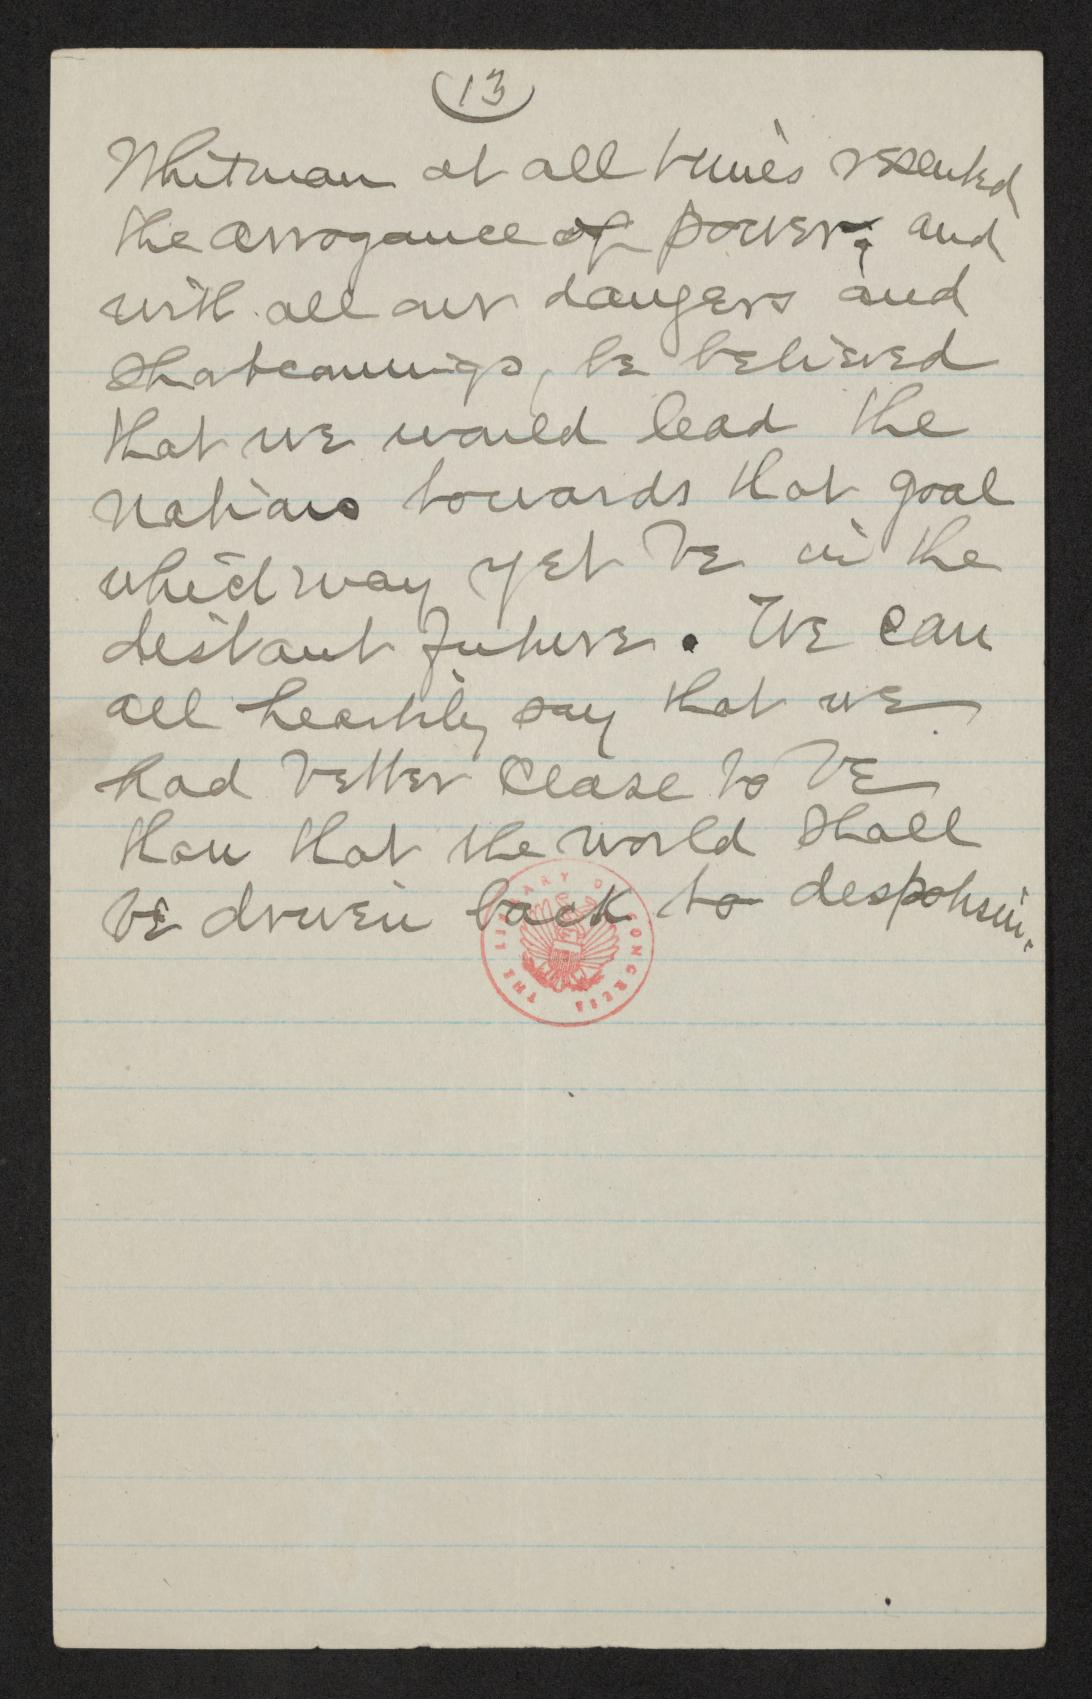 13
Whitman at all times resented
the arrogance of power; and
with all our dangers and
shortcomings, he believed
that we would lead the
Nations towards that goal
which may yet be in the
distant future. We can
all heartily say that we
had better cease to be
than that the world shall
be driven back to despotism.
THE LIBRARY OF CONGRESS